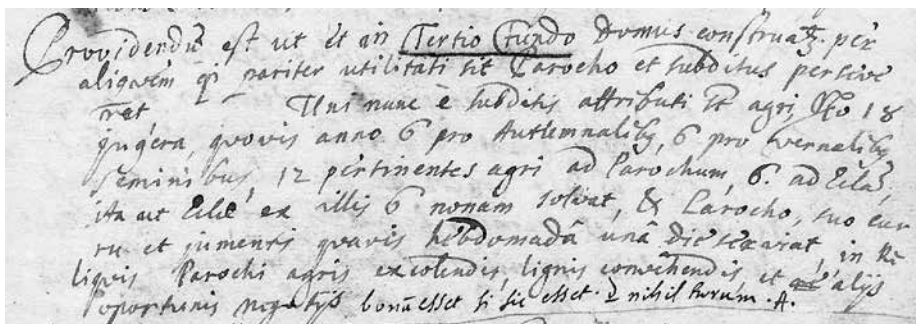 Providendũ est ut et in Tertio Fundo Domus construatꝫ per
aliquem qi pariter utilitati sit Parocho et subditus perseve
ret Uni nunc è subditis attributi st agri,
jugera, quovis anno 6 pro Autumnalibꝫ, 6 pro vernalibꝫ
seminibus, 12 pertinentes agri ad Parochum, 6. ad
ita ut ex illis 6 nonam solvat, & Parocho, suo cur
ru et jumentis quavis hebdomadâ unâ die serviat, in Re
liquis Parochi agris excolendis, lignis convehendis et alijs
oportunis negotijs bonũ esset si sic esset. nihil horum. A.